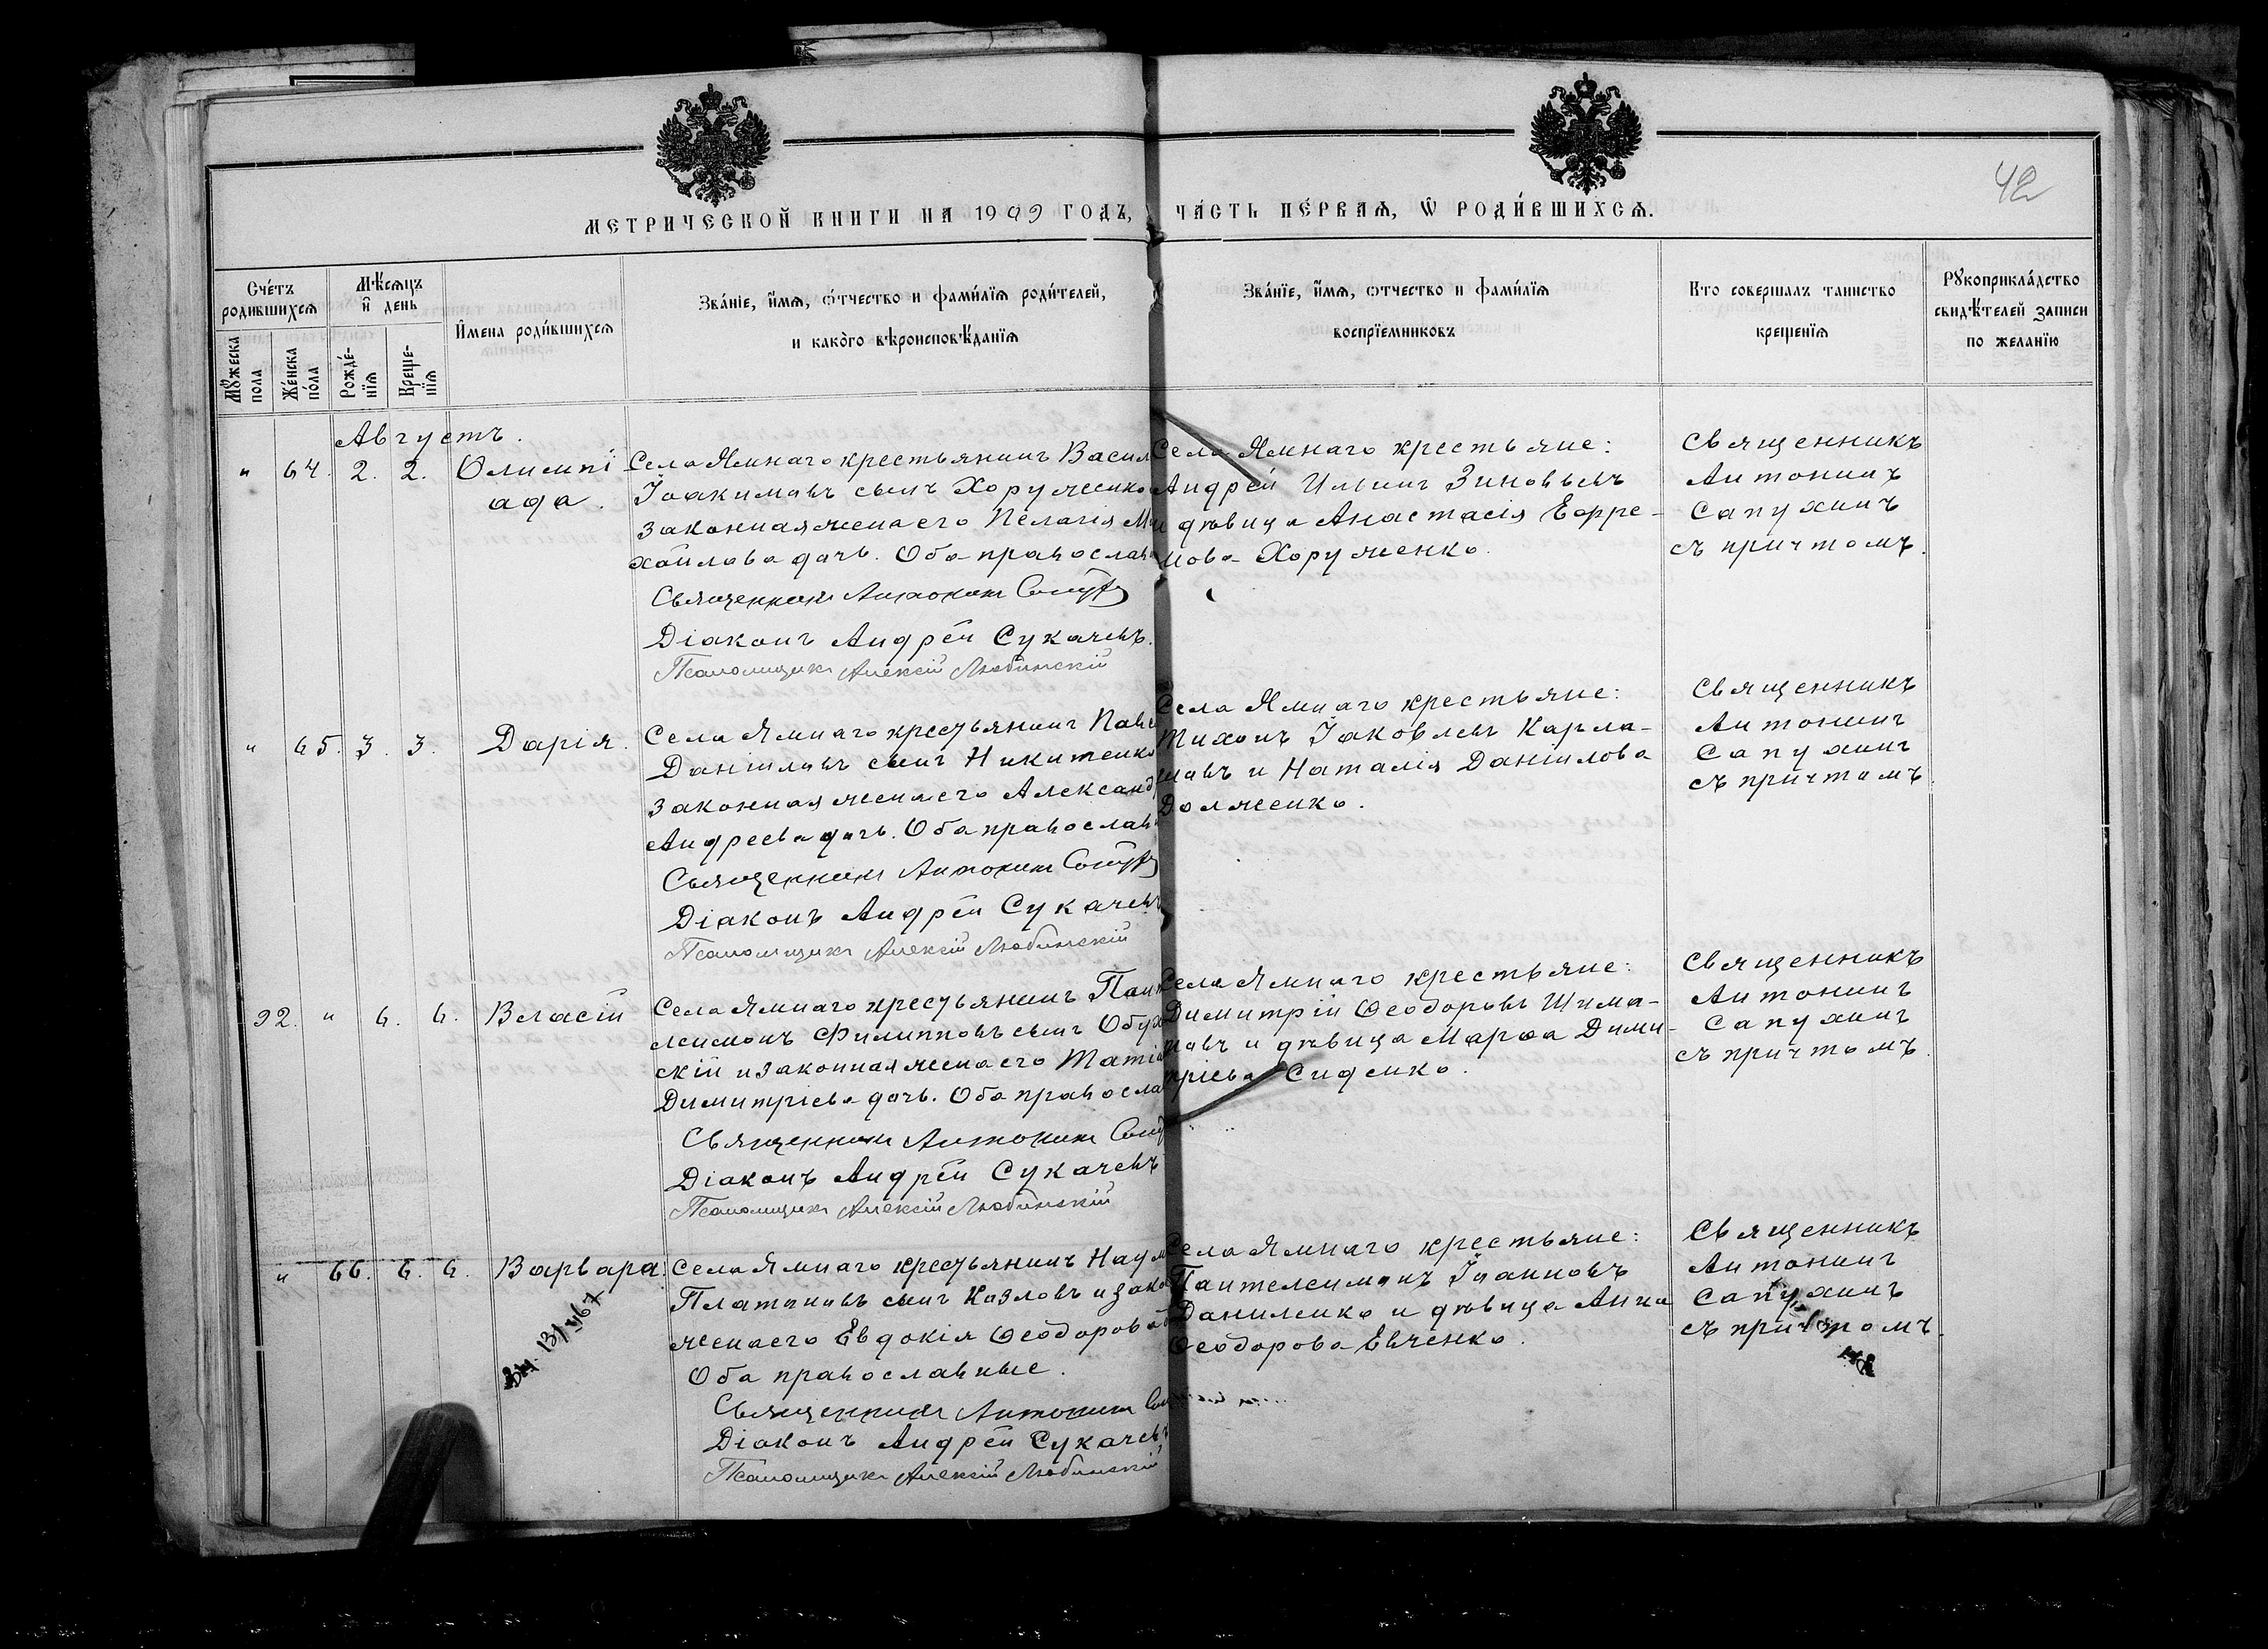 42
МЕТРИЧЕСКОЙ КНИГИ НА 1909 ГОДЪ, ЧАСТЬ ПЕРВАЯ, Ѡ РОДИВШИХСЯ.
Счетъ родившихся
Мѣсяцъ и день
Имена родившихся
Званіе, имя, отчество и фамилія родителей,
и какого вѣроисповѣданія
Званіе, имя, отчество и фамилія
воспріемниковъ
Кто совершалъ таинство
крещенія
Рукоприкладство
свидѣтелей записи
по желанію
Мужеска пола
Женска пола
Рожде-
нія
Креще-
нія
Августъ.
" 64. 2. 2. Олимпі-
ада.
Села Ямнаго крестьянинъ Васил
Іоакимовъ сынъ Хоруженко
законная жена его Пелагія Ми
хайлова дочь. Оба православн
Священникъ Антонинъ
Діаконъ Андрей Сукачевъ.
Псаломщикъ Алексій Любинскій
Села Ямнаго крестьяне:
Андрей Ильинъ Зиновьевъ
и дѣвица Анастасія Ефре-
мова Хоруженко.
Священникъ
Антонинъ
Сапухинъ
съ причтомъ.
" 65. 3. 3. Дарія.
Села Ямнаго крестьянинъ Павe
Даніиловъ сынъ Никитенко
законная жена его Александр
Андреева дочь. Оба православн
Священникъ Антонинъ
Діаконъ Андрей Сукачевъ
Псаломщикъ Алексій Любинскій
Села Ямнаго крестьяне:
Тихонъ Іаковлевъ Карла-
шовъ и Наталія Даніилова
Долженко.
Священникъ
Антонинъ
Сапухинъ
съ причтомъ.
32. " 6. 6. Власій
Села Ямнаго крестьянинъ Пант
леимонъ Филипповъ сынъ Обухо
скій и законная жена его Татіа
Димитріева дочь. Оба правосла
Священникъ Антонинъ
Діаконъ Андрей Сукачевъ
Псаломщикъ Алексій Любинскій
Села Ямнаго крестьяне:
Димитрій Ѳеодоровъ Шима-
новъ и дѣвица Марѳа Дими-
тріева Сиденко.
Священникъ
Антонинъ
Сапухинъ
съ причтомъ.
" 66. 6. 6. Варвара.
Села Ямнаго крестьянинъ Наум
Платоновъ сынъ Козловъ и зако
жена его Евдокія Ѳеодорова
Оба православные.
Священникъ Антонинъ
Діаконъ Андрей Сукачевъ
Псаломщикъ Алексій Любинскій
Села Ямнаго крестьяне:
Пантелеимонъ Іоанновъ
Даниленко и дѣвица Анна
Ѳеодорова Евченко.
Священникъ
Антонинъ
Сапухинъ
съ причтомъ.